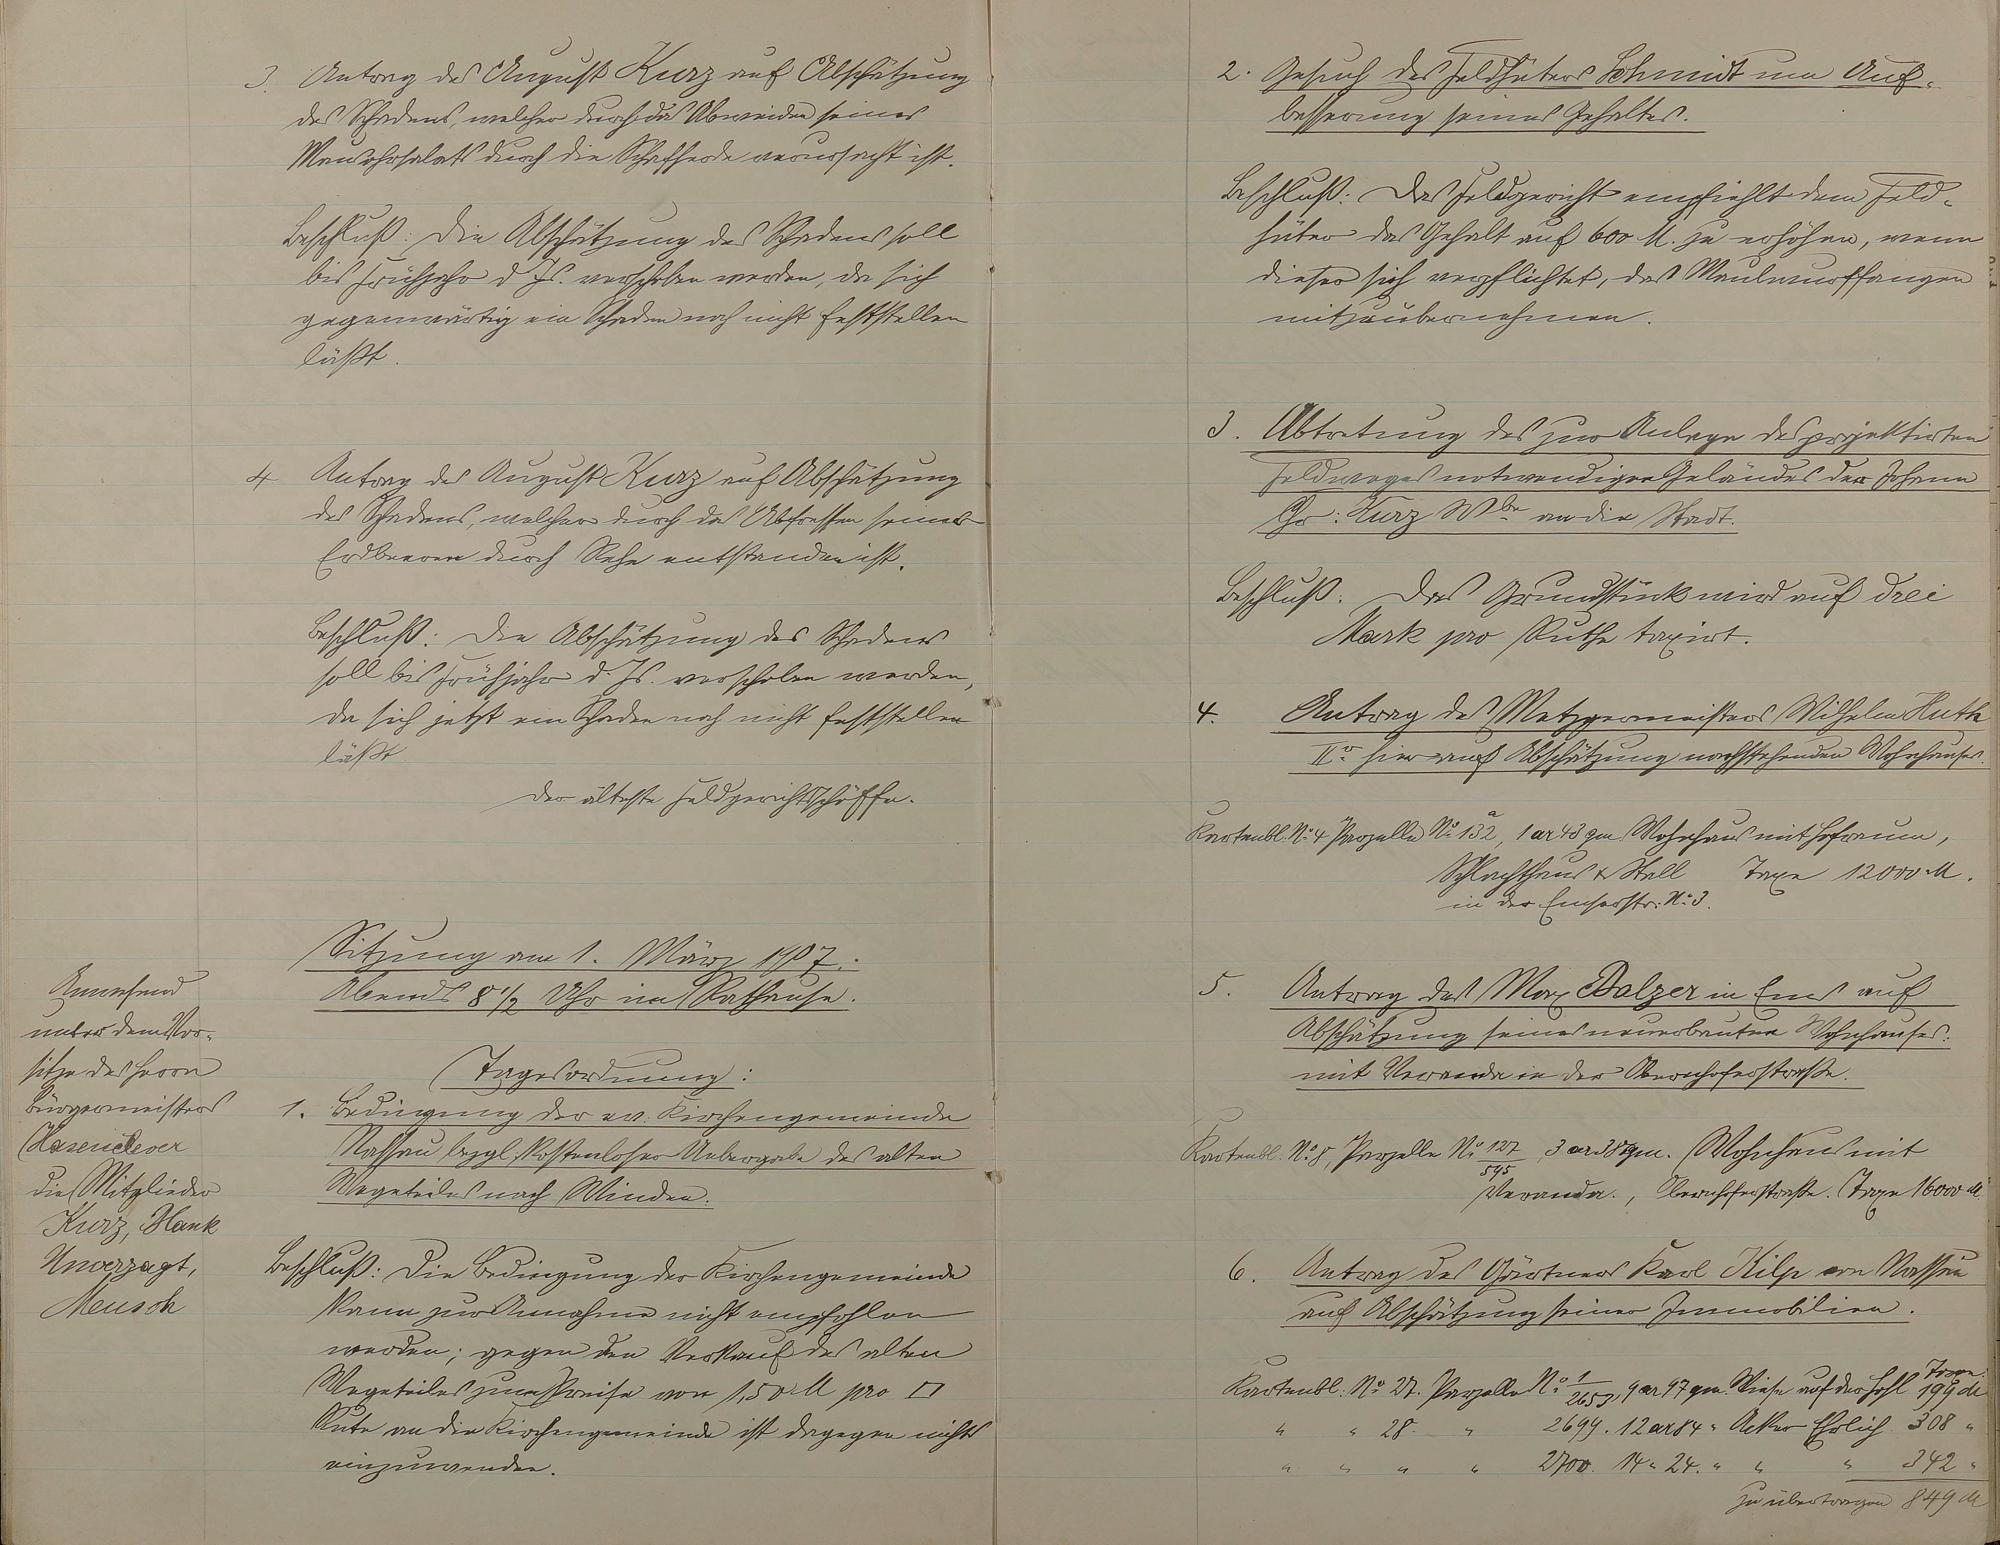 3. Antrag des August Kurz auf Abschätzung
des Schadens, welcher durch das Abweiden seines
Mausohrsalats durch die Schafherde verursacht ist.
Beschluß: Die Abschätzung des Schadens soll
bis Frühjahr d Js. verschoben werden, da sich
gegenwärtig ein Schaden noch nicht feststellen
läßt.
4 Antrag des August Kurz auf Abschätzung
des Schadens, welcher durch das Abfressen seiner
Erdbeeren durch Rehe entstanden ist.
Beschluß: Die Abschätzung des Schadens
soll bis Frühjahr d. Js. verschoben werden,
da sich jetzt ein Schaden noch nicht feststellen
läßt
Der älteste Feldgerichtsschöffe.
Sitzung am 1. März 1907.
Abends 8 1/2 Uhr im Rathause.
Anwesend
unter dem Vor-
sitze des Herrn
Bürgermeisters
Hasenclever
die Mitglieder
Kurz, Blank
Unverzagt,
Meusch
Tagesordnung:
1. Bedingung der ev. Kirchengemeinde
Nassau bezgl. kostenloser Uebergabe des alten
Wegeteiles nach Winden.
Beschluß: Die Bedingung der Kirchengemeinde
kann zur Annahme nicht empfohlen
werden; gegen den Verkauf des alten
Wegeteiles zum Preise von 1,50 M pro □
Rute an die Kirchengemeinde ist dagegen nichts
einzuwenden.
2. Gesuch des Feldhüters Schmidt um Auf-
besserung seines Gehaltes.
Beschluß: Das Feldgericht empfiehlt dem Feld-
hüter das Gehalt auf 600 M. zu erhöhen, wenn
dieser sich verpflichtet, das Maulwurffangen
mitzuübernehmen.
3. Abtretung des zur Anlage des projektirten
Feldweges notwendigen Geländes der Johann
Gr: Kurz Wbe an die Stadt.
Beschluß. Das Grundstück wird auf drei
Mark pro Ruthe taxirt.
4. Antrag des Metzgermeisters Wilhelm Huth
IIr hier auf Abschätzung nachstehenden Wohnhauses.
Kartenbl. No 4 Parzelle No 132 a, 1 ar 43 qm Wohnhaus mit Hofraum,
Schlachthaus & Stall Taxe 12000 M.
in der Emserstr: No 3.
5. Antrag des Max Balzer in Ems auf
Abschätzung seines neuerbauten Wohnhauses
mit Veranda in der Obernhoferstraße.
Kartenbl. No 8, Parzelle No 127/545, 3 ar 38 qm. Wohnhaus mit
Veranda., Obernhoferstraße. Taxe 16000 M
6. Antrag des Gärtners Karl Hilp von Nassau
auf Abschätzung seiner Immobilien.
Taxe
Kartenbl: No 27. Parzelle No 1/2653, 9 ar 97 qm Wiese auf der Hohl 199 M
" " 28. " 2699. 12 ar 84 " Acker Ehrlich 308 "
" " " " 2700. 14 " 24. " " " 342 "
zu übertragen 849 M